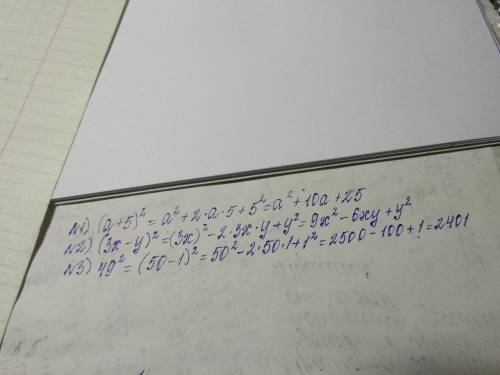 №1) (a+5)² = a²+2·a·5+5² = a²+10a+25
№2) (3x-y)² = (3x)²-2·3x·y+y² = 9x²-6xy+y²
№3) 49² = (50-1)² = 50²-2·50·1+1² = 2500-100+1 = 2401